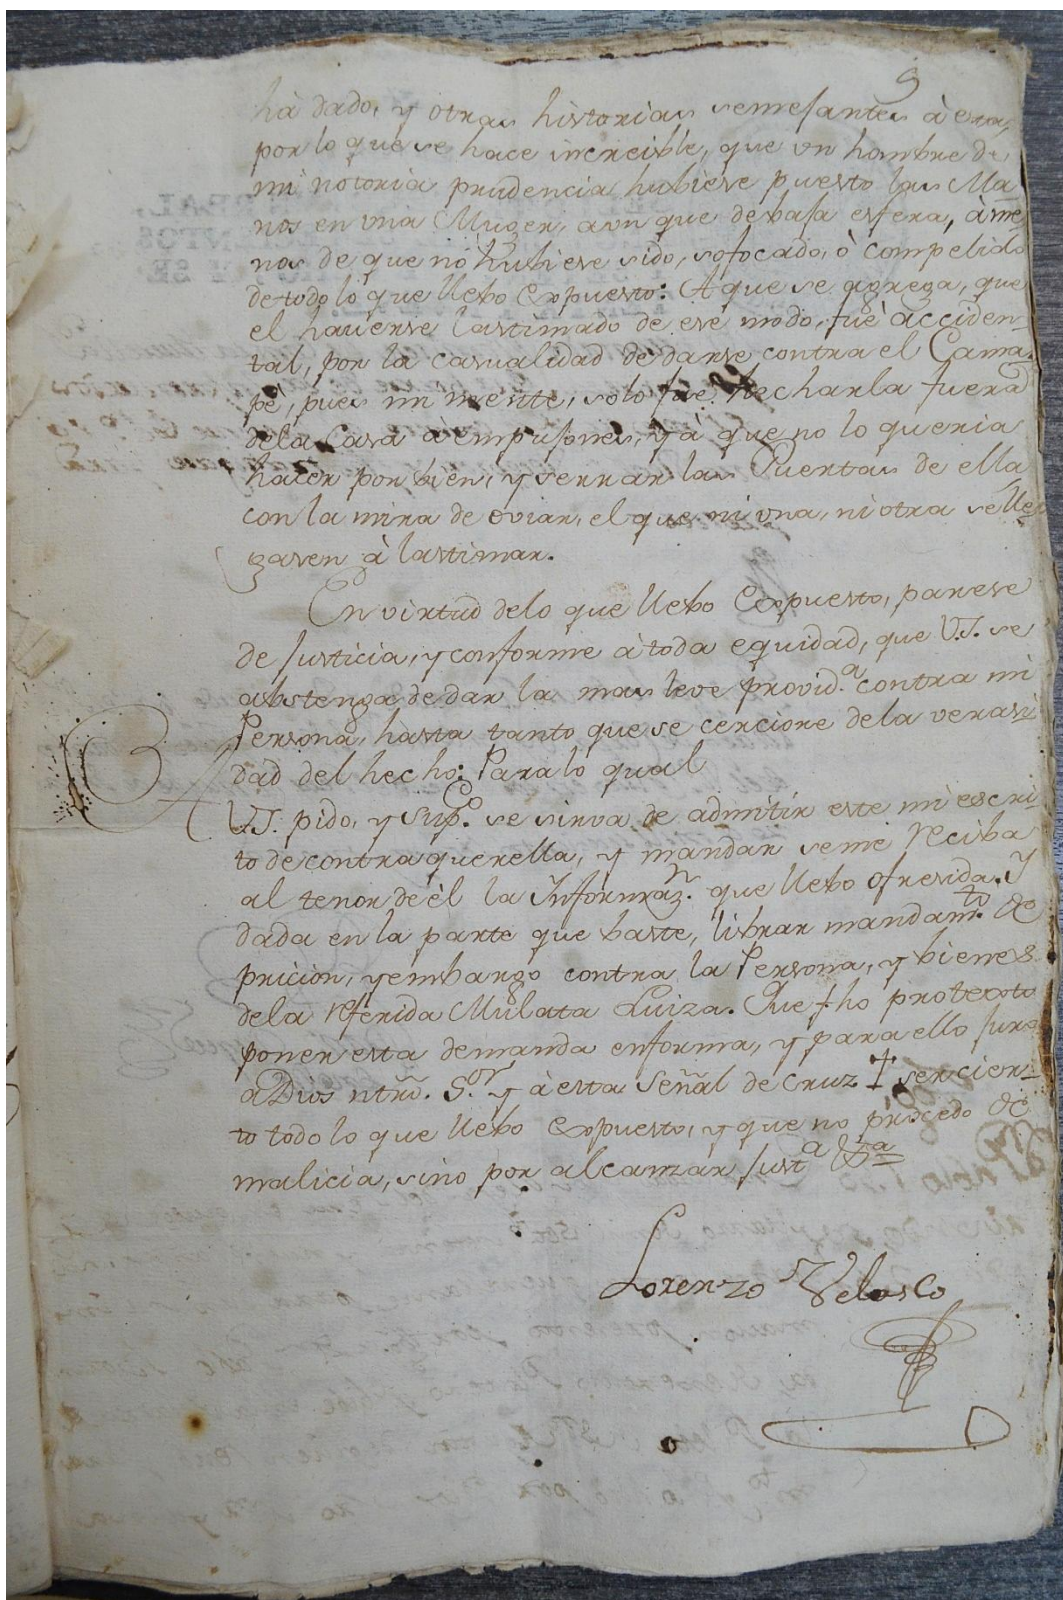 9
hà dado, y otras historias semejantes à esta,
por lo que se hace increible, que un hombre de
mi notoria prudencia hubiese puesto las Ma-
nos en una Muger, aun que de baja esfera, à me
nos de que no hubiese sido, sofocado, ò compelido
de todo lo que llebo expuesto: A que se agrega, que
el haverse lastimado de ese modo, fué acciden-
tal, por la casualidad de darse contra el Cama-
pé, pues mi mente, solo fue hecharla fuera
de la Casa à empujones, ya que no lo queria
hacer por bien, y serrar las Puertas de ella
con la mira de oviar, el que ni una, ni otra se lle
gasen à lastimar.
En virtud de lo que llebo expuesto, parese
de justicia, y conforme à toda equidad, que V.S. se
abstenga de dar la mas leve provid.a contra mi
Persona, hasta tanto que se cerciore de la verasi
dad del hecho: Para lo qual
A V.S. pido, y sup.co se sirva de admitir este mi escri-
to de contraquerella, y mandar seme reciba
al tenor de èl la Informaz.n que llebo ofresida. Y
dada en la parte que baste, librar mandam.to de
pricion, y embargo contra la Persona, y bienes
de la referida Mulata Luiza. Que fho protexto
poner esta demanda en forma, y para ello juro
a Dios ntrõ. S.or y à esta Señal de Cruz † ser cier-
to todo lo que llebo expuesto, y que no procedo de
malicia, sino por alcanzar just.a &.a
Lorenzo Velasco